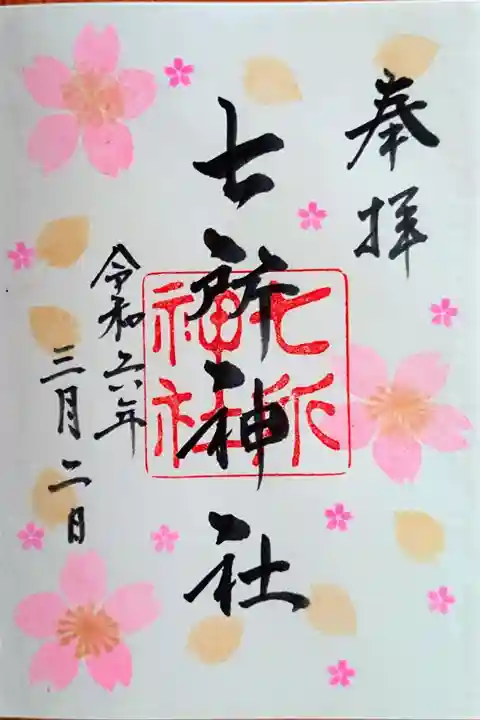 奉拝
七所神社
七所
神社
令和六年
三月二日